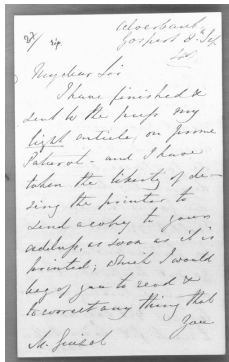 Alverbank
Gosport 8. Sep.
My dear Sir
I have finished &
sent to the press my
light article, on Jerome
Paturot - and I have
taken the liberty of de-
sing the printer to
send a copy to your
address, as soon as it is
printed; which I would
beg of you to read &
to correct any thing that
you
M. Guizot